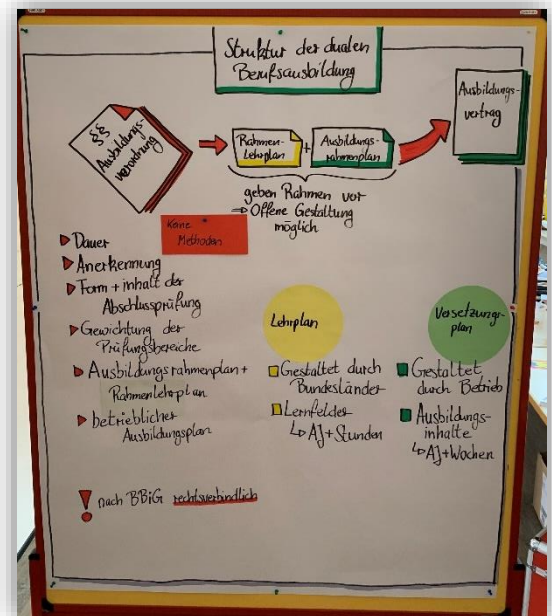 Struktur der dualen
Berufsausbildung
§§
Ausbildungs-
verordnung
Rahmen-
lehrplan
+
Ausbildungs-
rahmenplan
Ausbildungs-
vertrag
geben Rahmen vor
⇒ Offene Gestaltung
möglich
Keine
Methoden
Dauer
Anerkennung
Form + inhalt der
Abschlussprüfung
Gewichtung der
Prüfungsbereiche
Ausbildungsrahmenplan +
Rahmenlehrplan
betrieblicher
Ausbildungsplan
! nach BBiG rechtsverbindlich
Lehrplan
Gestaltet durch
Bundesländer
Lernfelder
↳ AJ + Stunden
Versetzungs-
plan
Gestaltet
durch Betrieb
Ausbildungs-
inhalte
↳ AJ + Wochen